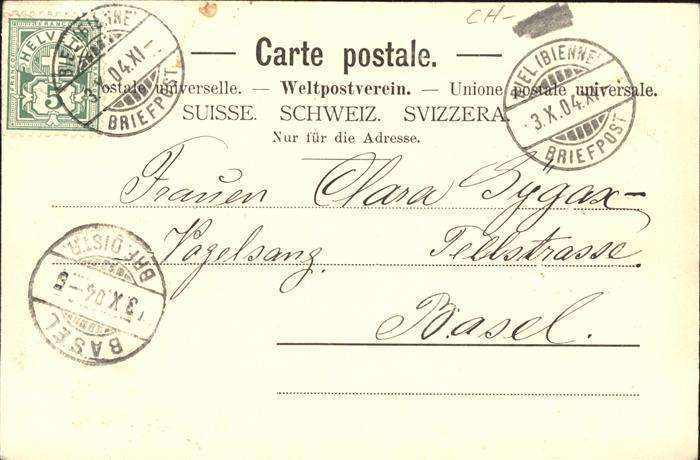 CH-
HELVETIA
FRANCO
5
BIEL (BIENNE)
3.X.04.XI-
BRIEFPOST
— Carte postale. —
postale universelle. — Weltpostverein. — Unione postale universale.
SUISSE. SCHWEIZ. SVIZZERA.
Nur für die Adresse.
BIEL (BIENNE)
3.X.04.XI-
BRIEFPOST
Frauen Clara Gÿgax-
Vogelsang. Tellstrasse.
Basel.
BRF. DISTR.
3.X.04-
BASEL